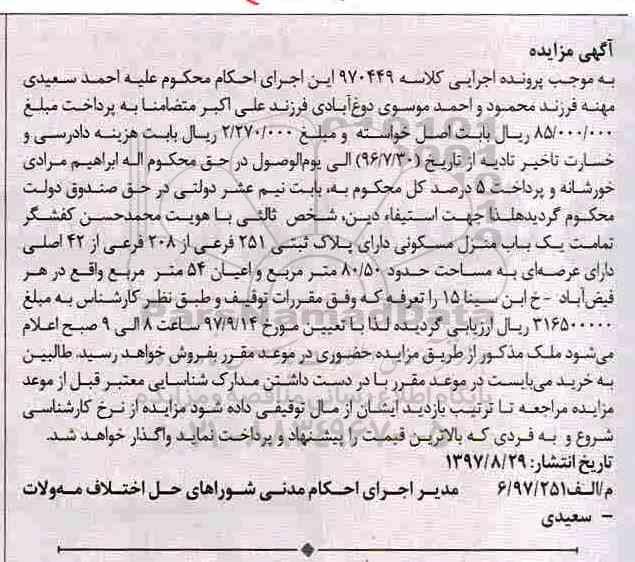 آگهی مزایده
به موجب پرونده اجرایی کلاسه ۹۷۰۴۴۹ این اجرای احکام محکوم علیه احمد سعیدی
مهنه فرزند محمود و احمد موسوی دوغ‌آبادی فرزند علی اکبر متضامنا به پرداخت مبلغ
۸۵/۰۰۰/۰۰۰ ریال بابت اصل خواسته و مبلغ ۲/۲۷۰/۰۰۰ ریال بابت هزینه دادرسی و
خسارت تاخیر تادیه از تاریخ (۹۶/۷/۳۰) الی یوم‌الوصول در حق محکوم اله ابراهیم مرادی
خورشانه و پرداخت ۵ درصد کل محکوم به، بابت نیم عشر دولتی در حق صندوق دولت
محکوم گردیدهلذا جهت استیفاء دین، شخص ثالثی با هویت محمدحسن کفشگر
تمامت یک باب منزل مسکونی دارای پلاک ثبتی ۲۵۱ فرعی از ۲۰۸ فرعی از ۴۲ اصلی
دارای عرصه‌ای به مساحت حدود ۸۰/۵۰ متر مربع و اعیان ۵۴ متر مربع واقع در هر
فیض‌آباد -خ ابن سینا ۱۵ را تعرفه که وفق مقررات توقیف و طبق نظر کارشناس به مبلغ
۳۱۶۵۰۰۰۰۰ ریال ارزیابی گردیده لذا با تعیین مورخ ۹۷/۹/۱۴ ساعت ۸ الی ۹ صبح اعلام
می‌شود ملک مذکور از طریق مزایده حضوری در موعد مقرر بفروش خواهد رسید. طالبین
به خرید می‌بایست در موعد مقرر با در دست داشتن مدارک شناسایی معتبر قبل از موعد
مزایده مراجعه تا ترتیب بازدید ایشان از مال توقیفی داده شود مزایده از نرخ کارشناسی
شروع و به فردی که بالاترین قیمت را پیشنهاد و پرداخت نماید واگذار خواهد شد.
تاریخ انتشار: ۱۳۹۷/۸/۲۹
م/الف۶/۹۷/۲۵۱ مدیر اجرای احکام مدنی شوراهای حل اختلاف مه‌ولات
– سعیدی
ParsNamadData
پایگاه اطلاع رسانی مناقصه و مزایده